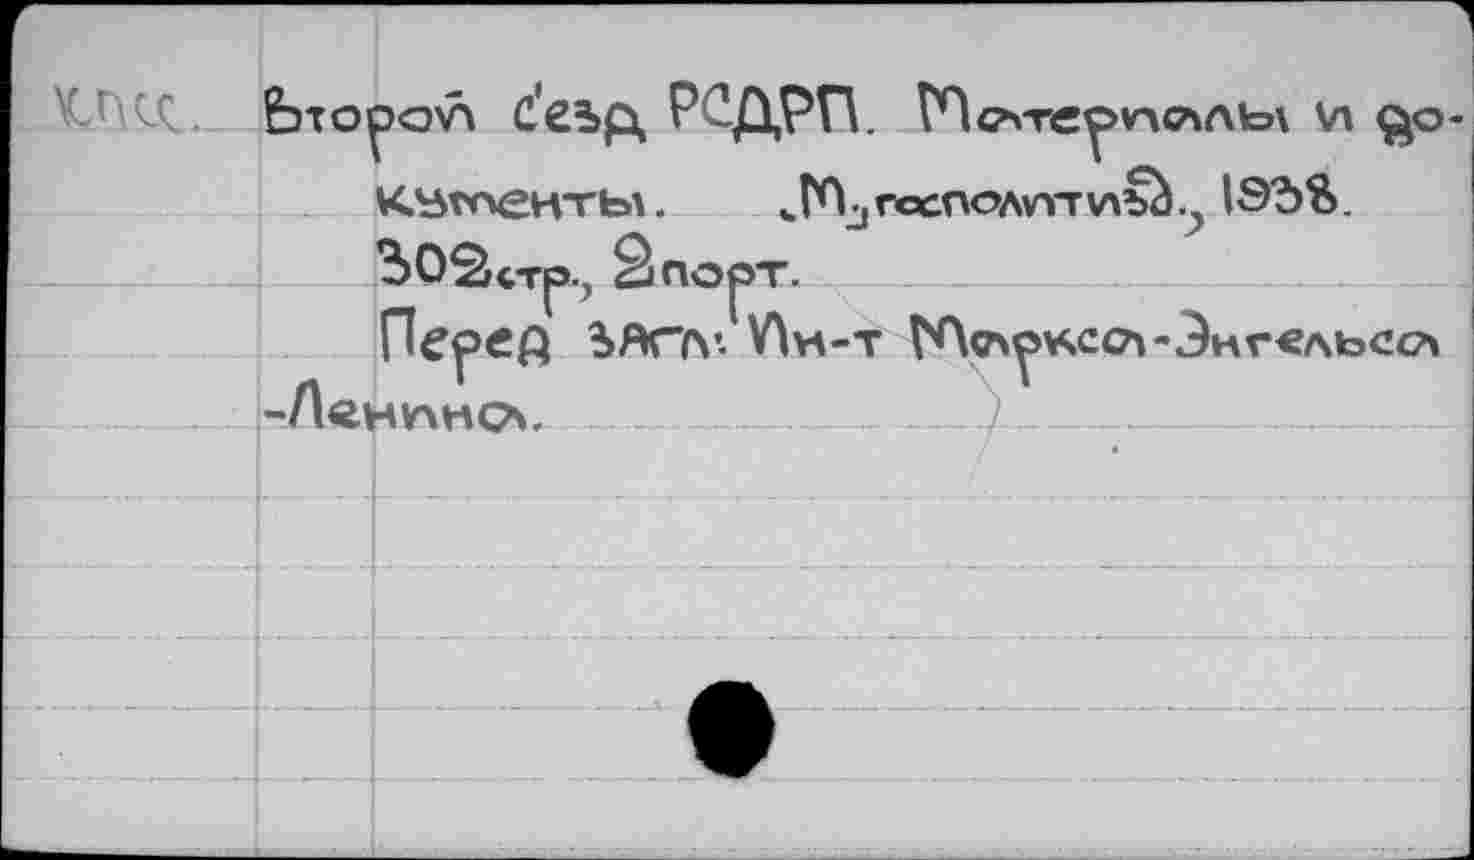 КПСС. Второй с'езд РСДРП. Материалы и до-
кументы. М., госполитизд., 1938.
302 стр., 2 порт.
Перед загл. Ин-т Маркса-Энгельса
-Ленина.